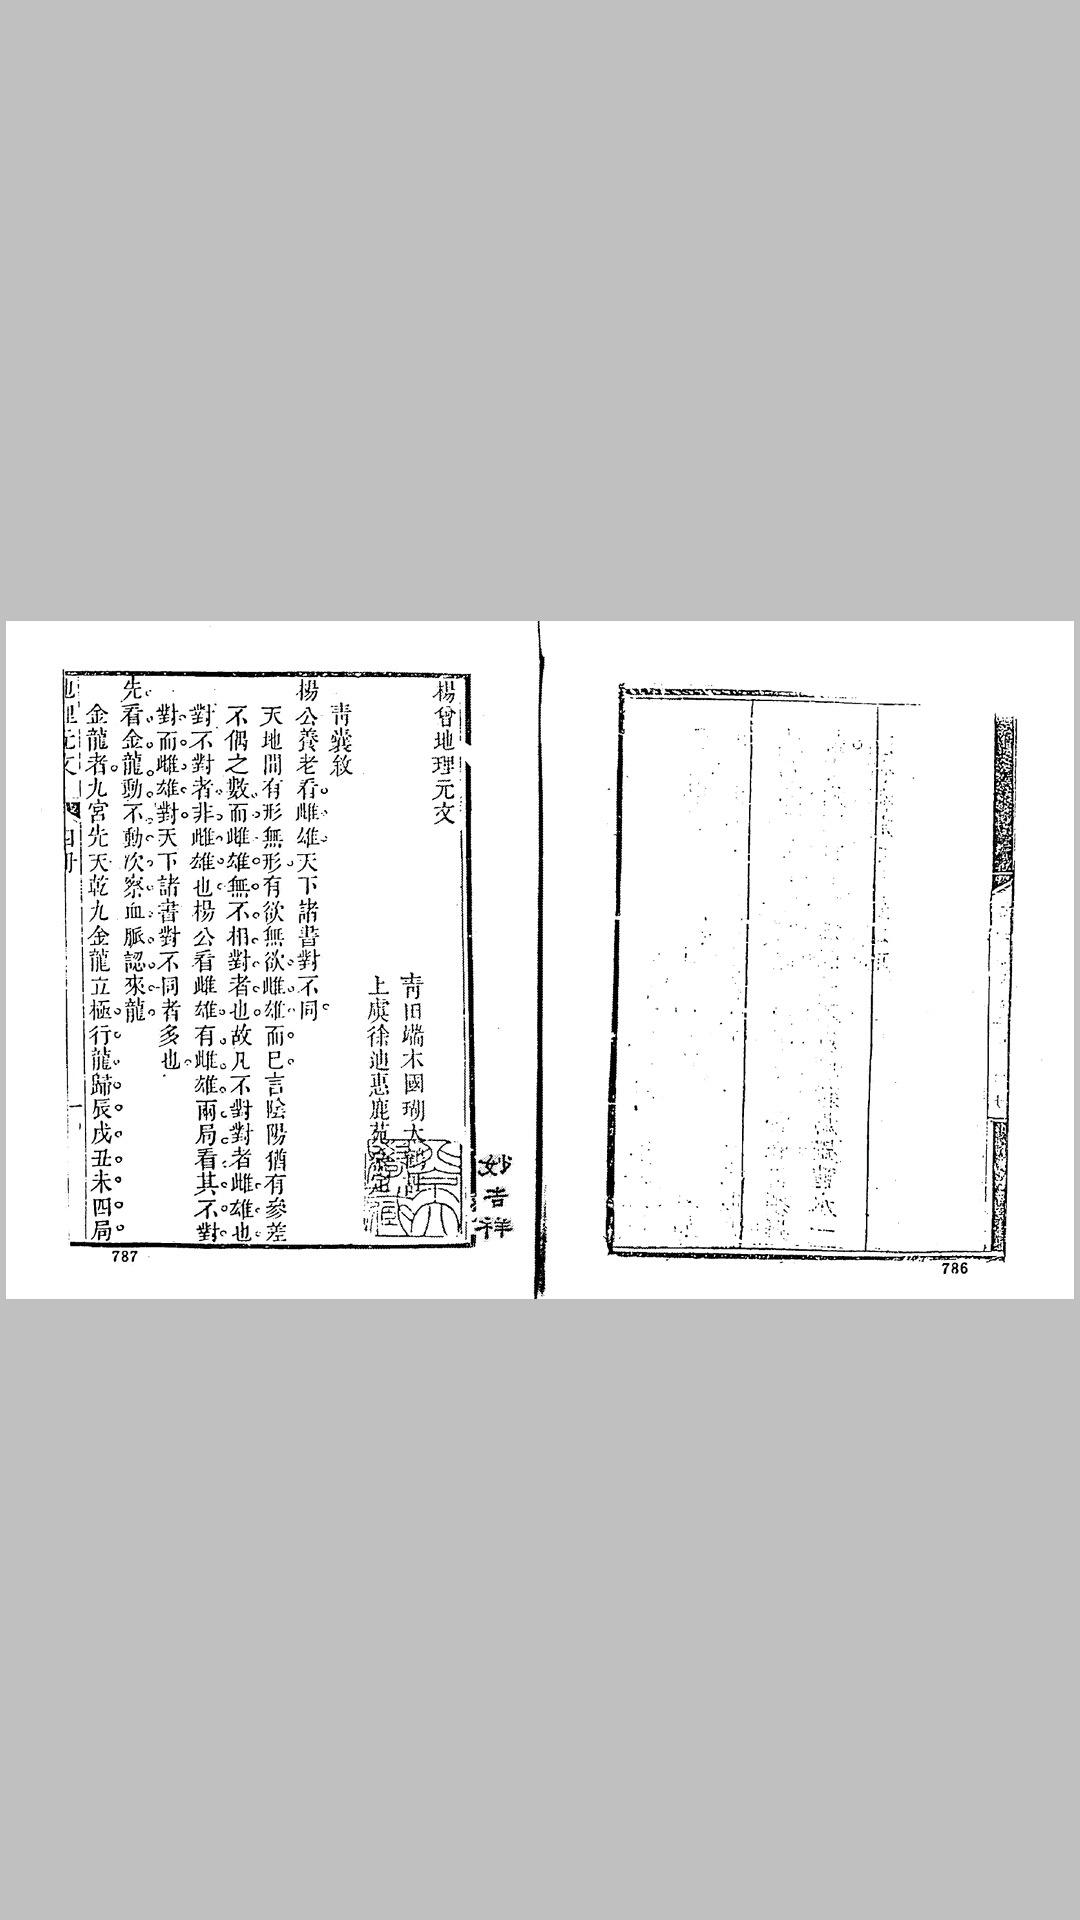 786
妙吉祥
楊曾地理元文
青田端木國瑚太鶴註
上虞徐迪惠鹿苑定
青囊敘
楊公養老看雌雄天下諸書對不同
天地間有形無形有欲無欲雌雄而已言陰陽猶有參差
不偶之數而雌雄無不相對者也故凡不對對者雌雄也
對不對者非雌雄也楊公看雌雄有雌雄兩局看其不對
對而雌雄對天下諸書對不同者多也
先看金龍動不動次察血脈認來龍
金龍者九宮先天乾九金龍立極行龍歸辰戌丑未四局
地理元文
一
787